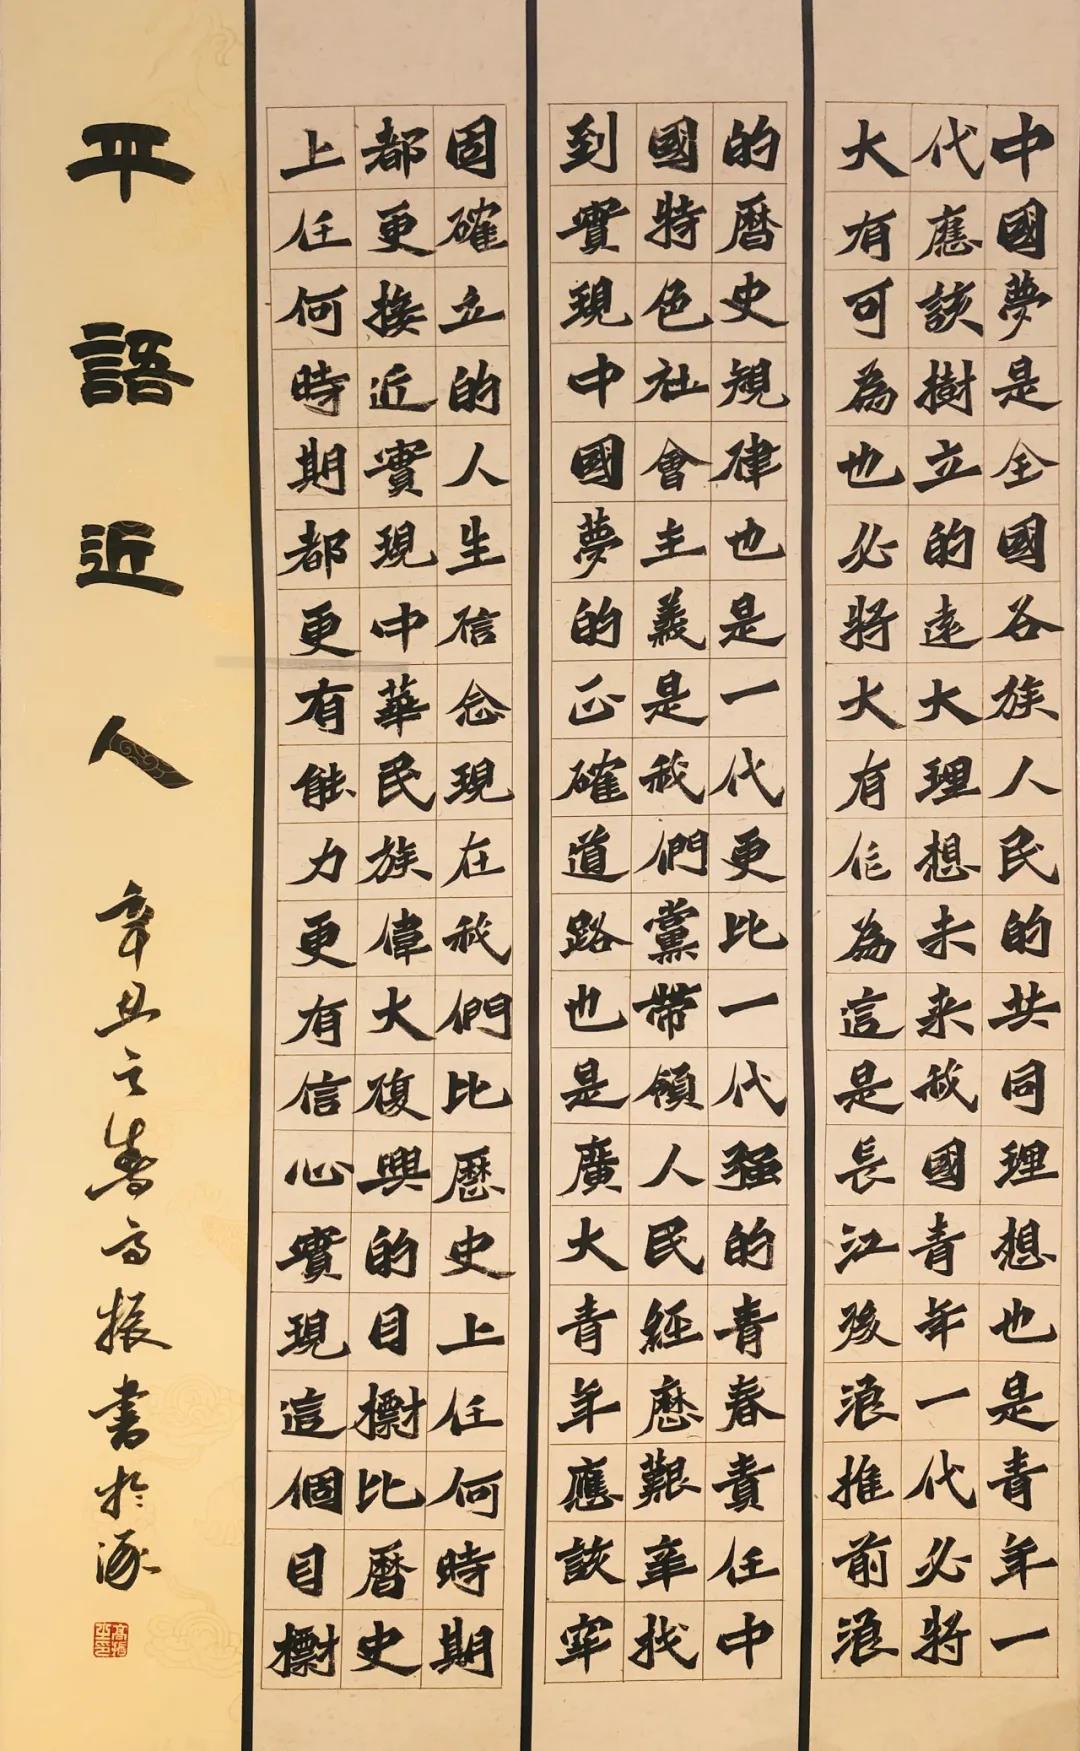 中國夢是全國各族人民的共同理想也是青年一
代應該樹立的遠大理想未来我國青年一代必將
大有可為也必將大有作為這是長江後浪推前浪
的曆史規律也是一代更比一代强的青春責任中
國特色社會主義是我們黨帶領人民經歷艱辛找
到實現中國夢的正確道路也是廣大青年應該牢
固確立的人生信念現在我們比歷史上任何時期
都更接近實現中華民族偉大復興的目標比曆史
上任何時期都更有能力更有信心實現這個目標
平語近人
辛丑之春高振書於涿